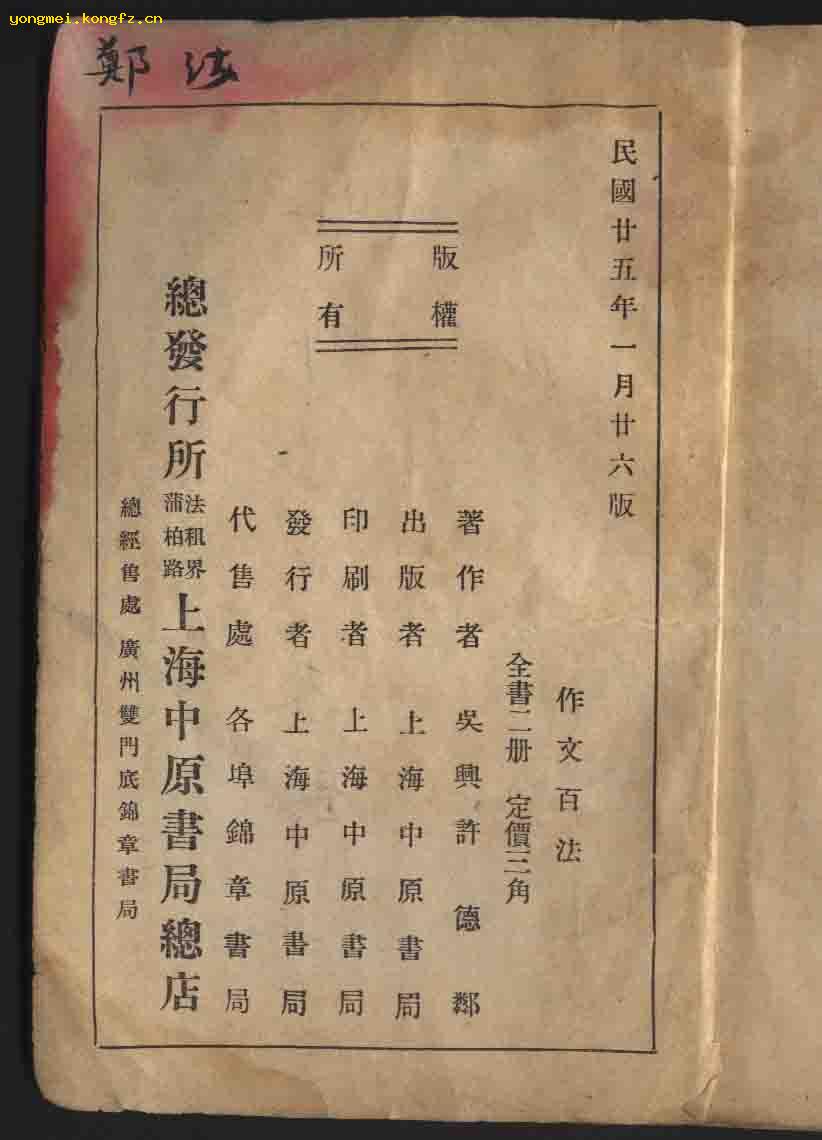 yongmei.kongfz.cn
鄭法
民國廿五年一月廿六版
版權
所有
作文百法
全書二册 定價三角
著作者 吳興許德鄰
出版者 上海中原書局
印刷者 上海中原書局
發行者 上海中原書局
代售處 各埠錦章書局
總發行所 法租界蒲柏路 上海中原書局總店
總經售處 廣州雙門底錦章書局